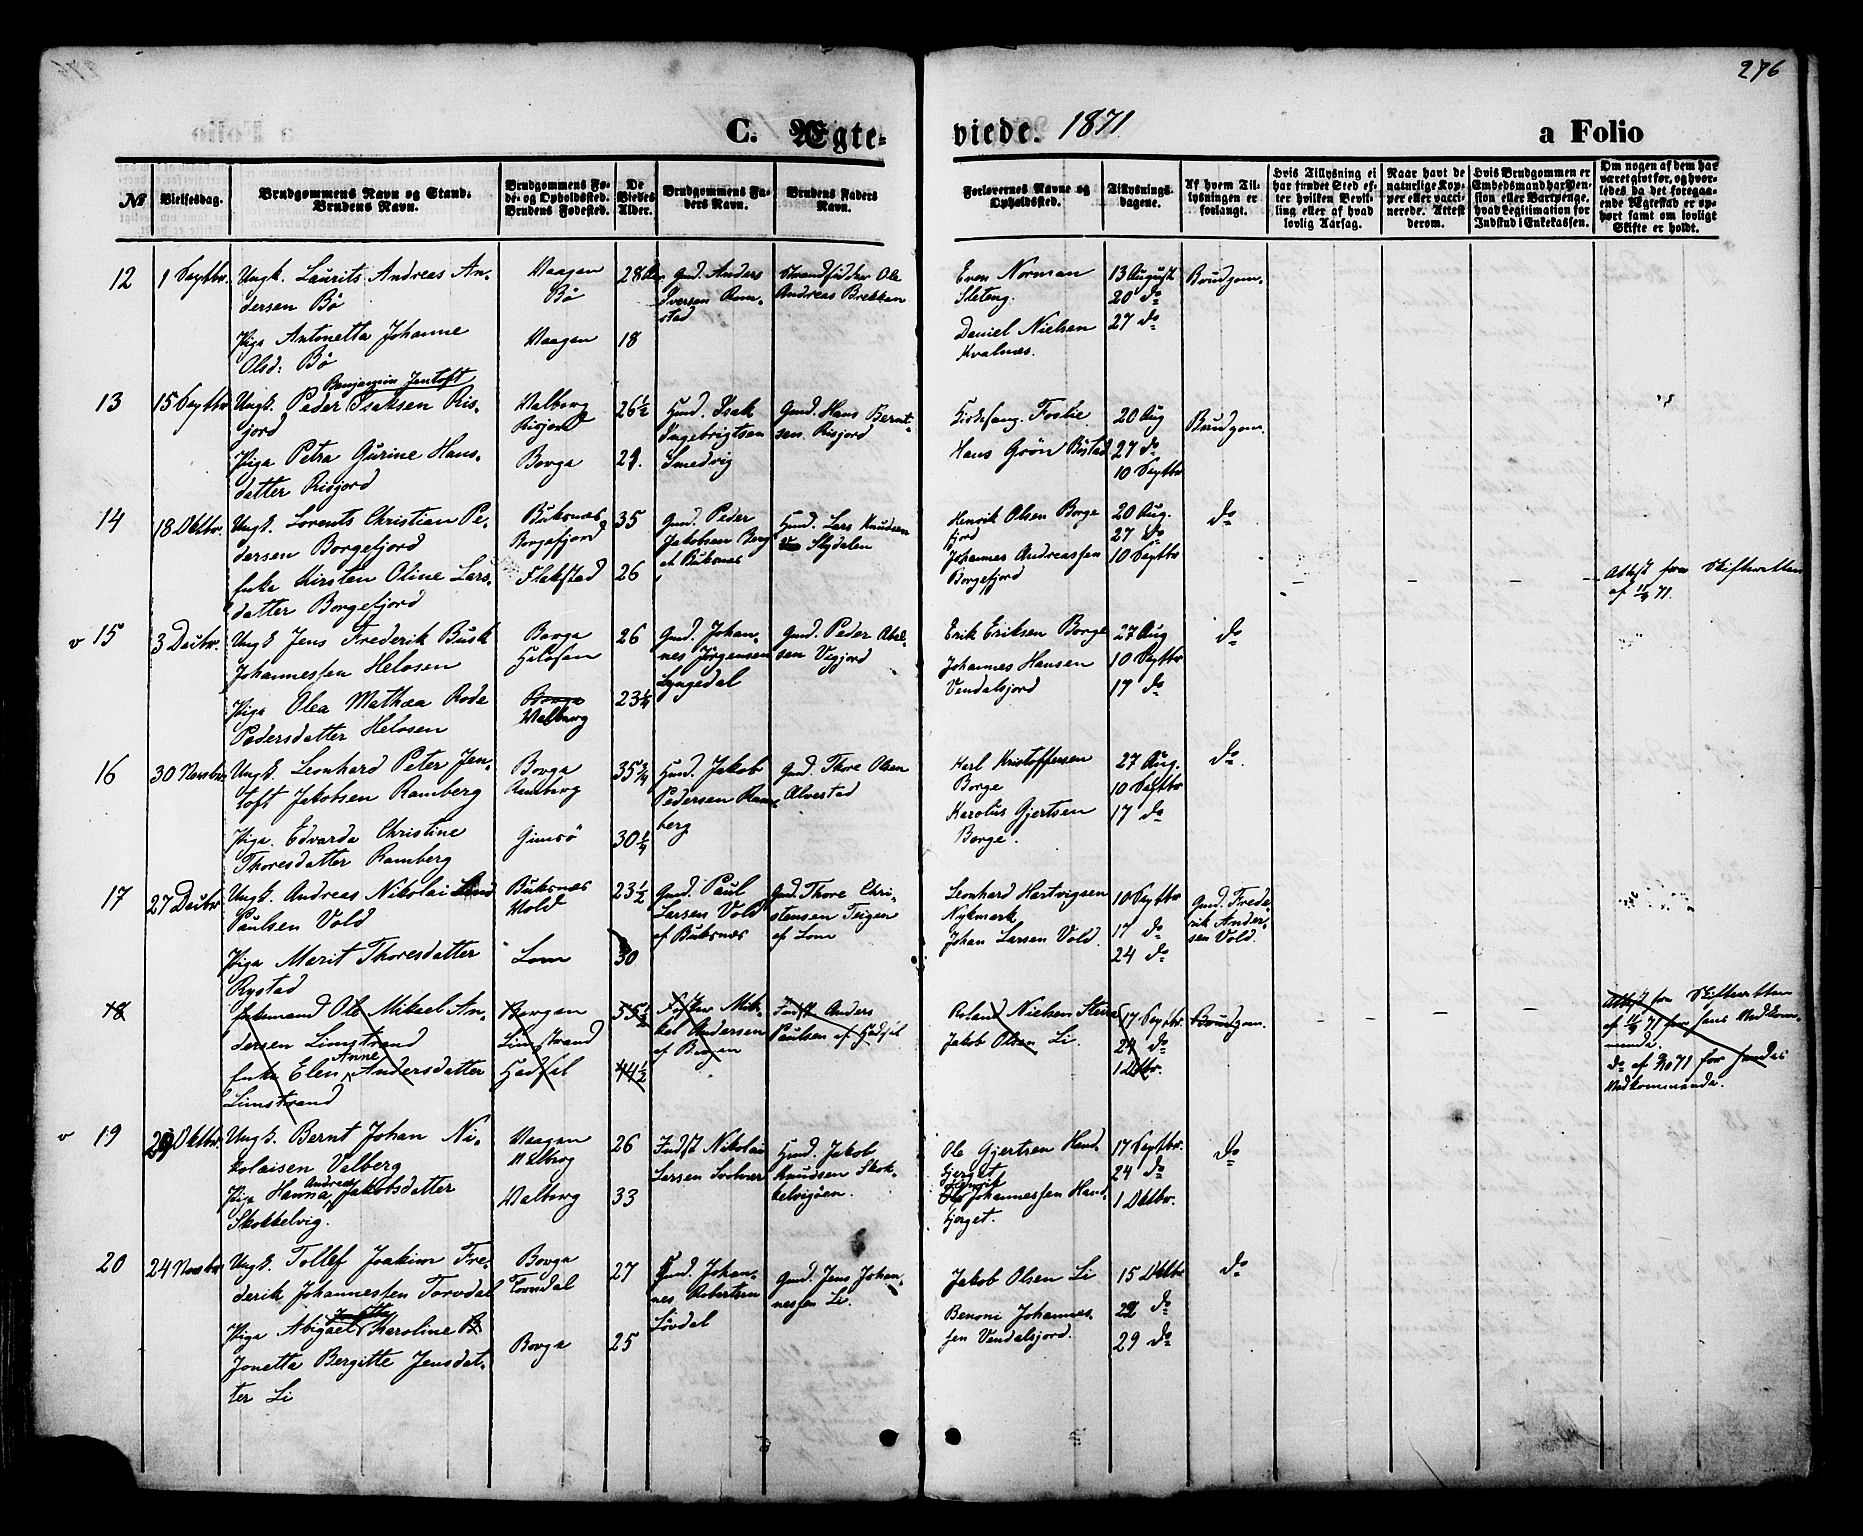 276
C. Ægte-
viede. 1871.
a Folio
№
Vielsesdag.
Brudgommens Navn og Stand.
Brudens Navn.
Brudgommens Fø-
de- og Opholdssted.
Brudens Fødested.
De
Viedes
Alder.
Brudgommens Fa-
ders Navn.
Brudens Faders
Navn.
Forlovernes Navne og
Opholdssted.
Tillysnings-
dagene.
Af hvem Til-
lysningen er
forlangt.
Hvis Tillysning ei
har fundet Sted ef-
ter hvilken Bevil-
ling eller af hvad
lovlig Aarsag.
Naar havt de
naturlige Kop-
per eller vacci-
nerede. Attest
derom.
Hvis Brudgommen er
Embedsmand har Pen-
sion eller Vartpenge,
hvad Legitimation for
Indskud i Enkekassen.
Om nogen af dem har
været gift før, og hvor-
ledes da det foregaa-
ende Ægteskab er op-
hørt samt om lovligt
Skifte er holdt.
12
1 Septbr.
Ungk. Laurits Andreas An-
dersen Bø
Pige Antonetta Johanne
Olsd: Bø
Vaagen
Bø
Vaagen
28 Aar
18
Gmd. Anders
Iversen Ram-
stad
Strandsidder Ole
Andreas Brekkan
Even Norman
Sleteng.
Daniel Nielsen
Kvalnæs.
13 August
20 do
27 do
Brudgom.
13
15 Septbr
Benjamin Jentoft
Ungk. Peder Isaksen Ris-
fjord
Pige Petra Gurine Hans-
datter Risfjord
Valberg
Risfjord
Borge
26½
29.
Hmd. Isak
Ingebrigtsen
Smedvig
Gmd. Hans Bernt-
sen Risfjord
Foslie.
Hans Grøn Bøstad
20 Aug
27 do
10 Septbr
Brudgom.
14
18 Oktbr.
Ungk. Lorents Christian Pe-
dersen Borgefjord
Enke Kirsten Oline Lars-
datter Borgefjord
Buksnæs
Borgefjord
Flakstad
35
26
Gmd. Peder
Jakobsen Berg
af Buksnæs
Hmd. Lars Knudsen
Skydalen
Henrik Olsen Borge
fjord
Johannes Andreassen
Borgefjord
20 Aug.
27 do
10 Septbr
do
Attest fra Skifteretten
15
3 Decbr.
Ungk Jens Frederik Busk
Johannessen Helosen
Pige Olea Mathea Roda
Pedersdatter Helosen
Borge
Helosen
Borge
Valberg
26
23¼
Gmd. Johan-
nes Jørgensen
Lyngedal
Gmd. Peder Abel-
sen Vigjord
Erik Eriksen Borge
Johannes Hansen
Vendalsjord
27 Aug
10 Septbr
17 do
do
16
30 Novbr
Ungk. Leonhard Peter Jen-
toft Jakobsen Ramberg
Pige Edvarda Christine
Thoresdatter Ramberg
Borge
Ramberg
Gimsö
35¾
30¼
Hmd. Jakob
Pedersen Ram-
berg
Gmd. Thore Olsen
Alvestad
Karl Kristoffersen
Borge
Karolus Gjertsen
Borge.
27 Aug.
10 Septbr
17 do
do.
17
27 Decbr
Ungk. Andreas Nikolai Lund
Paulsen Vold
Pige Marit Thoresdatter
Rystad
Buksnæs
Vold
Lom
23½
30
Gmd. Paul
Larsen Vold
af Buksnæs
Gmd. Thore Chri-
stensen Teigen
af Lom
Leonhard Hartvigsen
Nykmark
Johan Larsen Vold.
10 Septbr
17 do
24 do
Gmd. Frede-
rik Ander-
sen Vold.
18
Enkemand Ole Mikael An-
dersen Limstrand
Enke Elen Anne Andersdatter
Limstrand
Bergen
Limstrand
Hadsel
55½
44½
Mik-
kel Andersen
af Bergen
Indst Anders
Paulsen af Hadsel
Roland Nielsen
Jakob Olsen Li.
17 Septbr.
24 do
1 Oktbr.
Brudgom.
Attest fra Skifteretten
71 for hans Medkom-
manda.
do af No 71 for hendes
Medkommanda.
19
29 Oktbr.
Ungk. Bernt Johan Ni-
kolaisen Valberg
Pige Hanna Andrea Jakobsdatter
Skokkelvig.
Vaagen
Valberg
Valberg
26
33
Indst Nikolai
Larsen Svolvær
Hmd. Jakob
Knudsen Skok-
kelvigöen.
Ole Gjertsen Hand-
bjerget
Henrik
Johannessen Hand-
bjerget.
17 Septbr.
24 do
1 Oktbr.
do
20
24 Novbr
Ungk. Tollef Joakim Fre-
derik Johannessen Torvdal
Pige Abigael Karoline
Jonetta Bergitte Jensdat-
ter Li
Borge
Torvdal
Borge
27
25
Gmd. Johan-
nes Robertsen
Lövdal
Gmd. Jens Johan-
nessen Li.
Jakob Olsen Li
Benoni Johannes-
sen Vendalsjord.
15 Oktbr
22 do
29 do
do